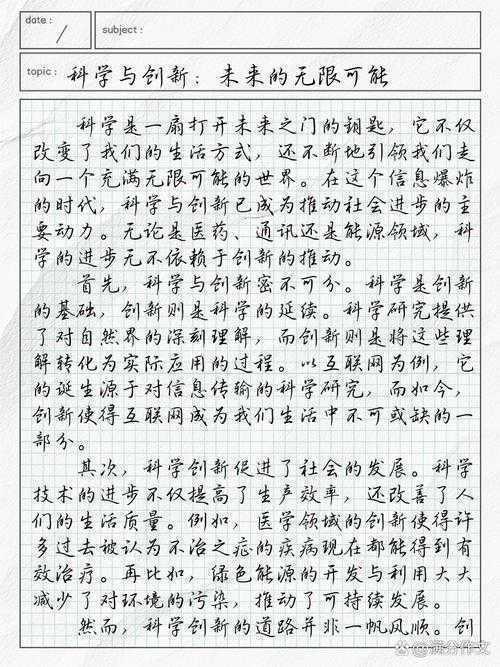 date:
subject:
topic: 科学与创新：未来的无限可能
科学是一扇打开未来之门的钥匙，它不仅
改变了我们的生活方式，还不断地引领我们走
向一个充满无限可能的世界。在这个信息爆炸
的时代，科学与创新已成为推动社会进步的主
要动力。无论是医药、通讯还是能源领域，科
学的进步无不依赖于创新的推动。
首先，科学与创新密不可分。科学是创新
的基础，创新则是科学的延续。科学研究提供
了对自然界的深刻理解，而创新则是将这些理
解转化为实际应用的过程。以互联网为例，它
的诞生源于对信息传输的科学研究，而如今，
创新使得互联网成为我们生活中不可或缺的一
部分。
其次，科学创新促进了社会的发展。科学
技术的进步不仅提高了生产效率，还改善了人
们的生活质量。例如，医学领域的创新使得许
多过去被认为不治之症的疾病现在都能得到有
效治疗。再比如，绿色能源的开发与利用大大
减少了对环境的污染，推动了可持续发展。
然而，科学创新的道路并非一帆风顺。创
@满分作文